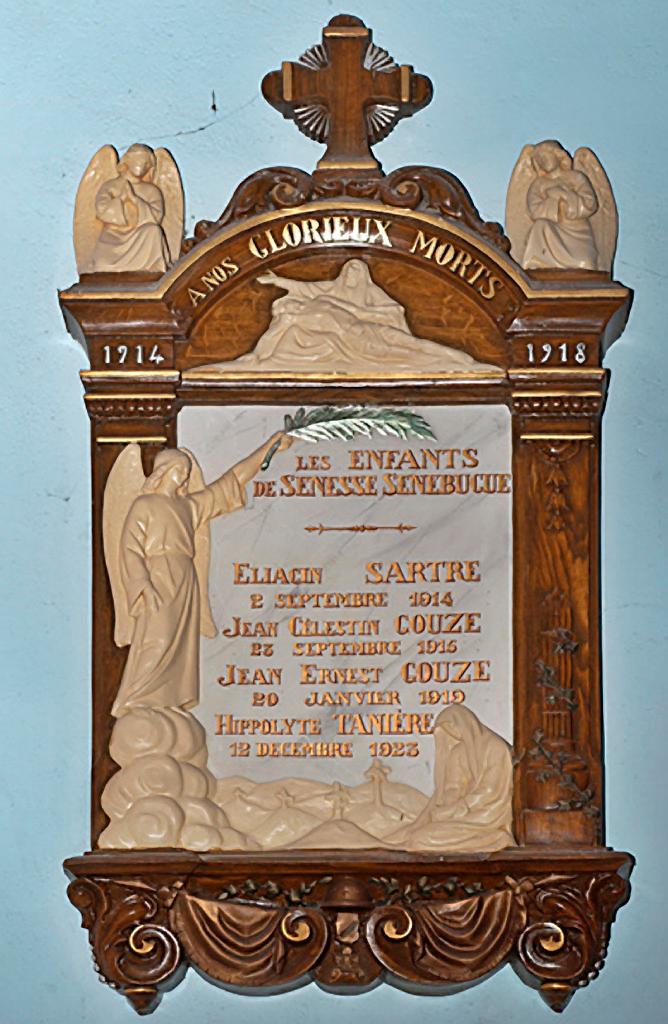 A NOS GLORIEUX MORTS
1914 1918
LES ENFANTS
DE SENESSE SENEBUGUE
ELIACIN SARTRE
2 SEPTEMBRE 1914
JEAN CÉLESTIN COUZE
23 SEPTEMBRE 1915
JEAN ERNEST COUZE
20 JANVIER 1919
HIPPOLYTE TANIÈRE
12 DECEMBRE 1923